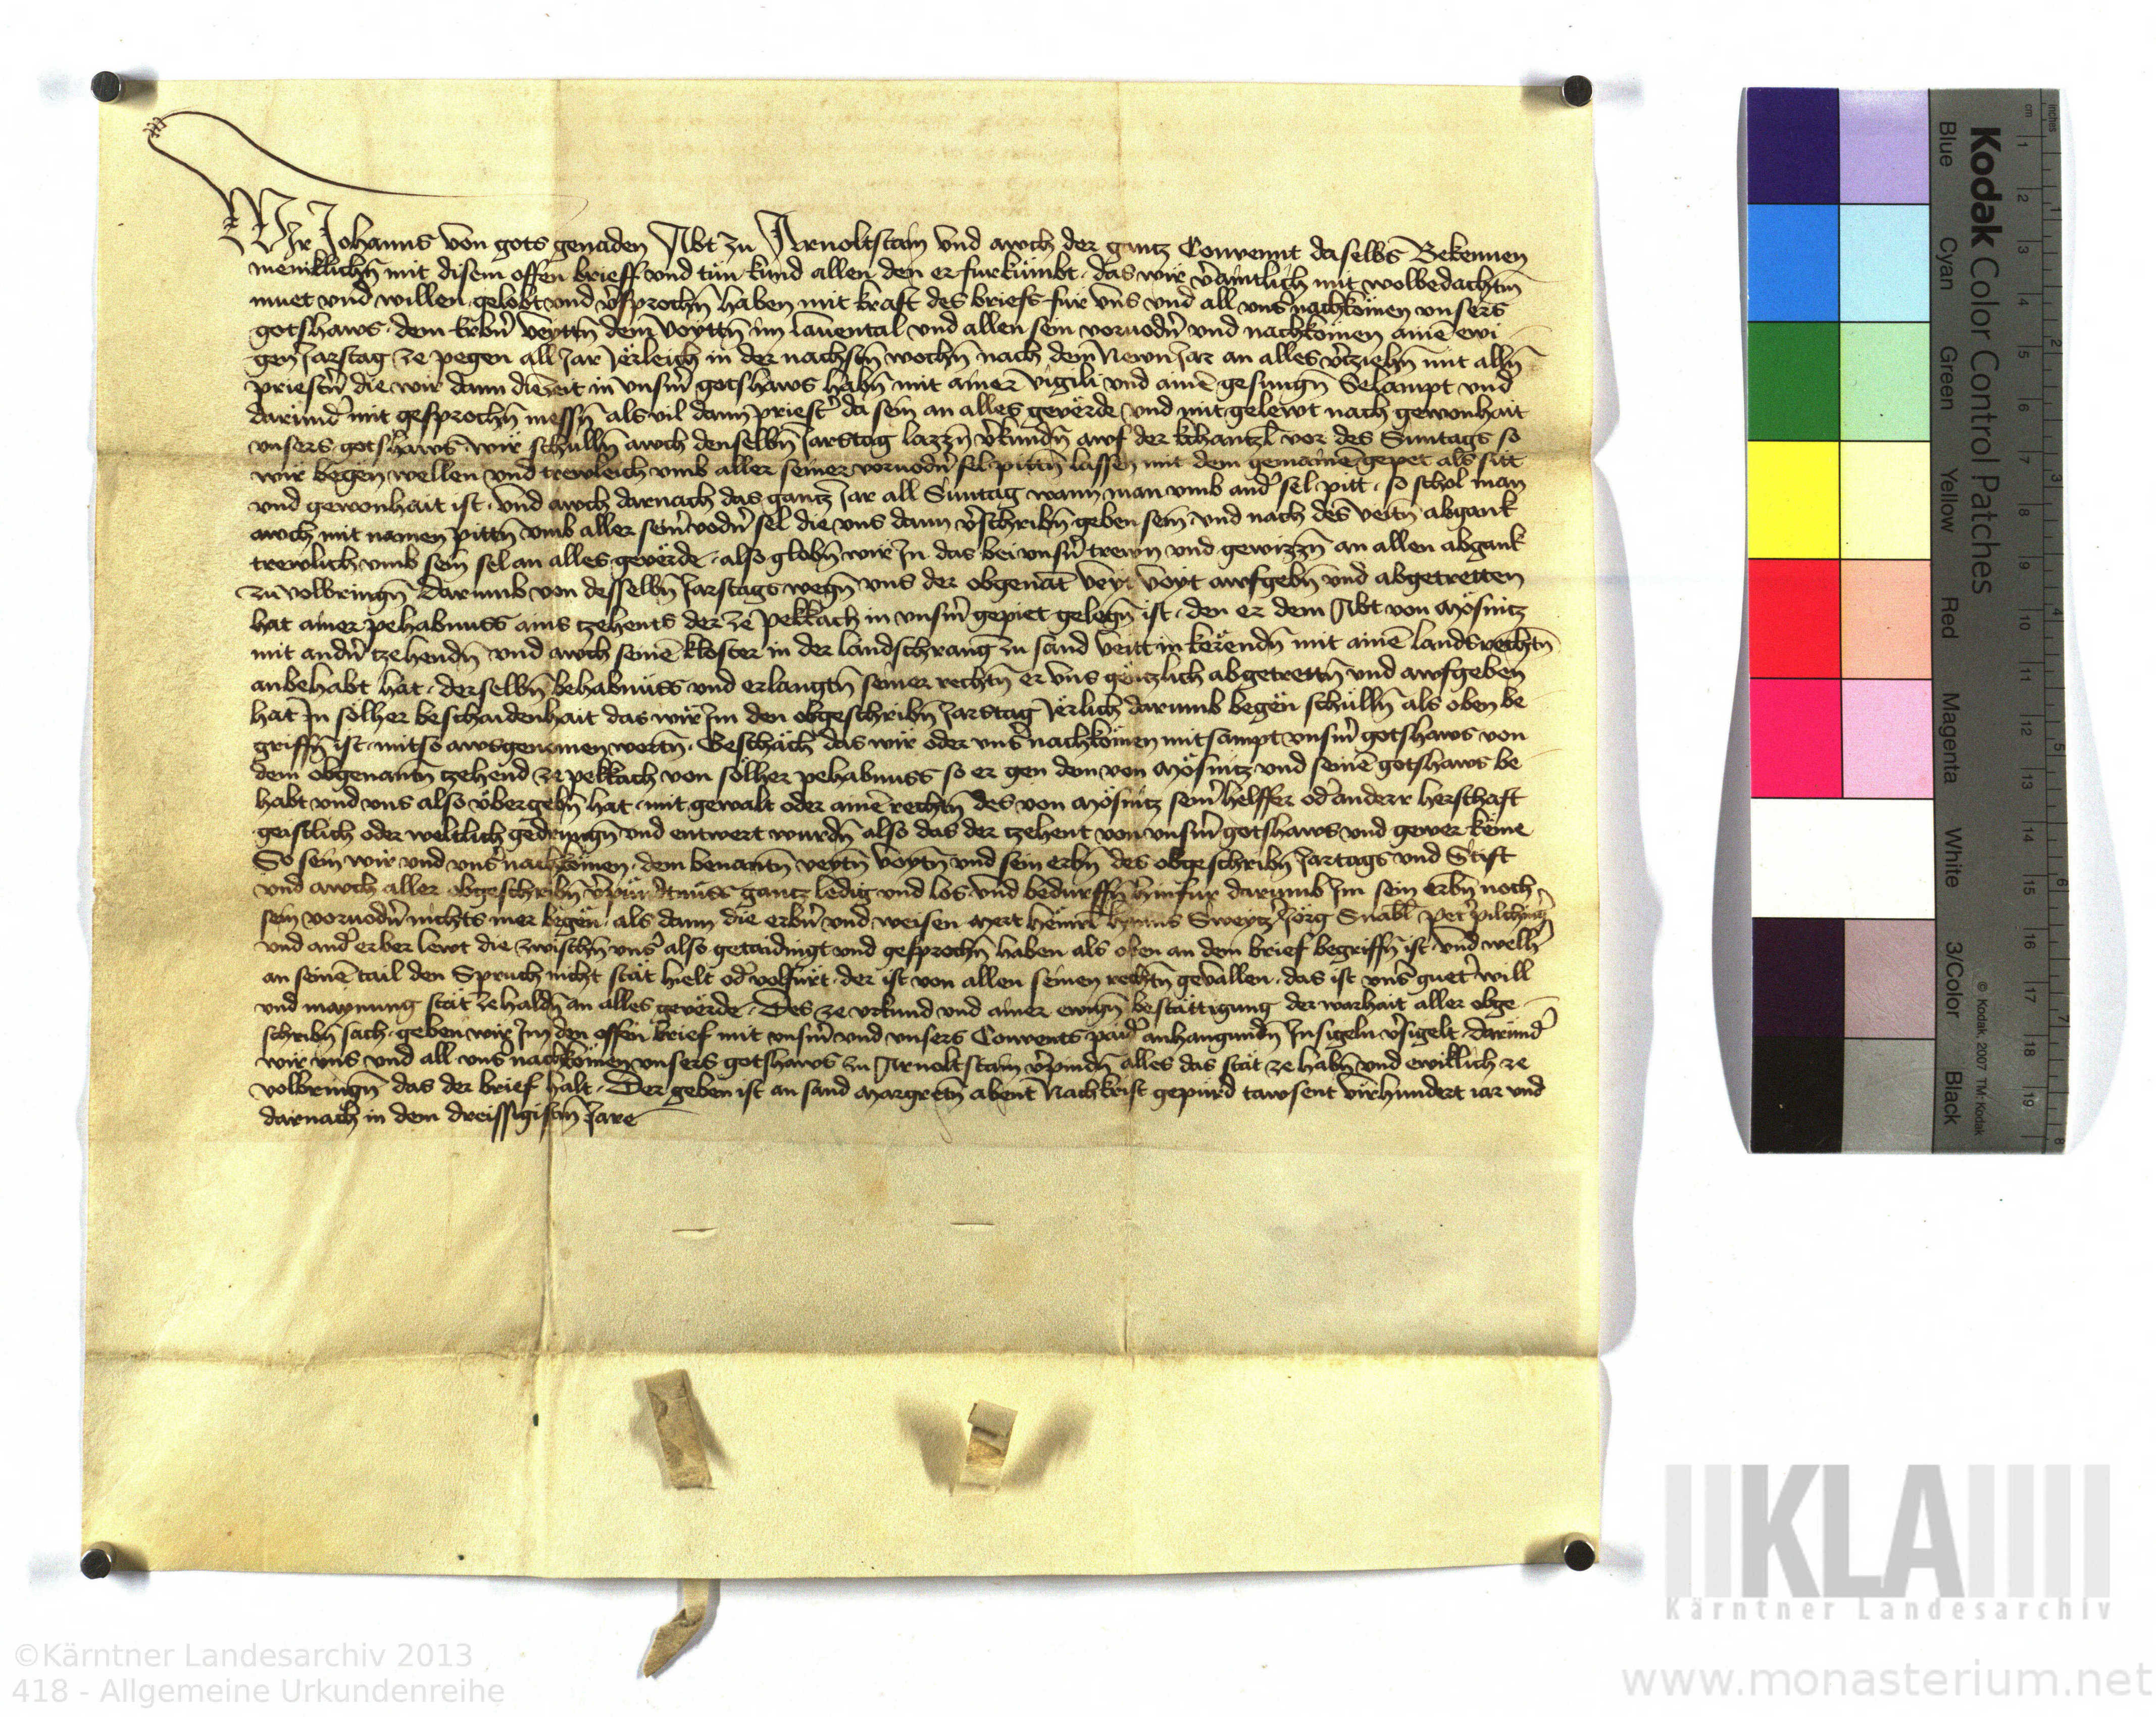 Wir Johanns von gots genaden Abt zu Arnoltstain vnd awch der gantz Conuennt daselbs Bekennen
meniklichn̄ mit disem offen brieff vnd tun kund allen den er furkümbt · das wir v̓aintlich mit wolbedachtm̄
muet vnd willen gelobt vnd v̓sprochn̄ haben mit kraft des briefs für vns vnd all vns̓ nachkömen vnsers
gotshaws · dem Erbn̓ Veyttn̄ dem Voyttn̄ im lauental vnd allen sein voruodn̓ vnd nachkömen ainē ewi
gen Jarstag ze pegen all Jar Jërleich in der nachstn̄ wochn̄ nach dem Newn Jar an alles v̓tziehn̄ mit alln̄
priestn̓ die wir dann diezeit in vnsm̓ gotshaws habn̄ mit ainer vigili vnd ainē gesungn̄ Selampt vnd
darund̓ mit gesprochn̄ messn̄ als vil dann priest̓ da sein an alles geuërde vnd mit gelewt nach gewonhait
vnsers gotshaws · wir schulln̄ awch denselbn̄ Jarstag lazzn̄ v̓kundn̄ awf der kchantzl̄ vor des Suntags so
wir begen wellen vnd trewleich vmb aller seiner voruodn̓ sel pittn̄ lassen mit dem gemainē gepet als sitt
vnd gewonhait ist · vnd awch darnach das gantz Jar all Suntag wann man vmb and̓ sel pitt · so schol man
awch mit namen pittn̄ vmb aller sein̓ vodn̓ sel die vns dann v̓schribn̄ geben sein · vnd nach des veitn̄ abgank
trewlich vmb sein sel an alles geuërde · also globn̄ wir In das bei vnsn̓ trewn vnd gewizzn̄ an allen abgank
zu volbringn̄ Darumb von desselbn̄ Jarstags wegn̄ vns der obgenāt Veyt Voyt awfgebn̄ vnd abgetretten
hat ainer pehabnuss ains tzehents der ze Pekkach in vnsm̓ gepiet gelegn̄ ist · den er dem Abt von Mösnitz
mit andn̓ tzehendn̄ vnd awch seinē kloster in der landschrang zu sand Veitt in kerendn̄ mit ainē landsrechtn̄
anbehabt hat · derselbn̄ behabnüss vnd erlangtn̄ seiner rechtn̄ er vns gëntzlich abgetrettn̄ vnd awfgeben
hat In sölher beschaidenhait das wir Im den obgeschribn̄ Jarstag Jerlich darumb begën schülln̄ als oben be
griffn̄ ist · mit so awsgenomen wortn̄ · Beschäch das wir oder vns̓ nachkömen mitsampt vnsm̓ gotshaws von
dem obgenantn̄ tzehend ze pekkach von sölher pehabnuss so er gen dem von Mösnitz vnd seinē gotshaws be
habt vnd vns also vbergebn̄ hat · mit gewalt oder ainē rechtn̄ des von Mösnitz sein̓ helffer od̓ anderr herschaft
geistlich oder weltlich gedrungn̄ vnd entwert wurdn̄ also das der tzehent von vnsm̓ gotshaws vnd gewer këme
So sein wir vnd vns̓ nachkömen · dem benantn̄ veytn̄ Voytn̄ vnd sein erbn̄ des obgeschribn̄ Jartags vnd Stift
vnd awch aller obgeschribn̄ gantz ledig vnd los · vnd bedurffn̄ hinfur darumb Im sein erbn̄ noch
sein voruodn̓ nichts mer begën · als dann die erbn̓ vnd weisen Mert Sweytz̓ Jörg Snabl̄ Pet̓
vnd and̓ erber lewt die zwischn̄ vns̓ also getaidingt vnd gesprochn̄ haben als oben an dem brief begriffn̄ ist · vnd welh̓
an seinē tail den Spruch nicht stät hielt od̓ volfürt · der ist von allen seinen rechtn̄ geuallen · das ist vns̓ guet̓ will
vnd maynung stät ze haldn̄ an alles geuërde · Des ze vrkund vnd ainer ewign̄ bestättigung der warhait aller obge
schribn̄ sach · geben wir Im den offen brief mit vnsm̓ vnd vnsers Conuents paid̓ anhangundn̄ Insigeln v̓sigelt · darund̓
wir vns vnd all vns̓ nachkömen vnsers gotshaws zu Arnoltstain v̓pindn̄ alles das stät ze habn̄ vnd ewiklich ze
volbringn̄ das der brief halt · Der geben ist an sand Margretn̄ abent Nach krist gepurd tawsent virhundert iar vnd
darnach in dem dreissigistn̄ Jare
Kodak Color Control Patches
Blue
Cyan
Green
Yellow
Red
Magenta
White
3/Color
Black
© Kodak, 2007 TM: Kodak
cm 1 2 3 4 5 6 7 8 9 10 11 12 13 14 15 16 17 18 19
inches 1 2 3 4 5 6 7 8
KLA
Kärntner Landesarchiv
©Kärntner Landesarchiv 2013
418 - Allgemeine Urkundenreihe
www.monasterium.net